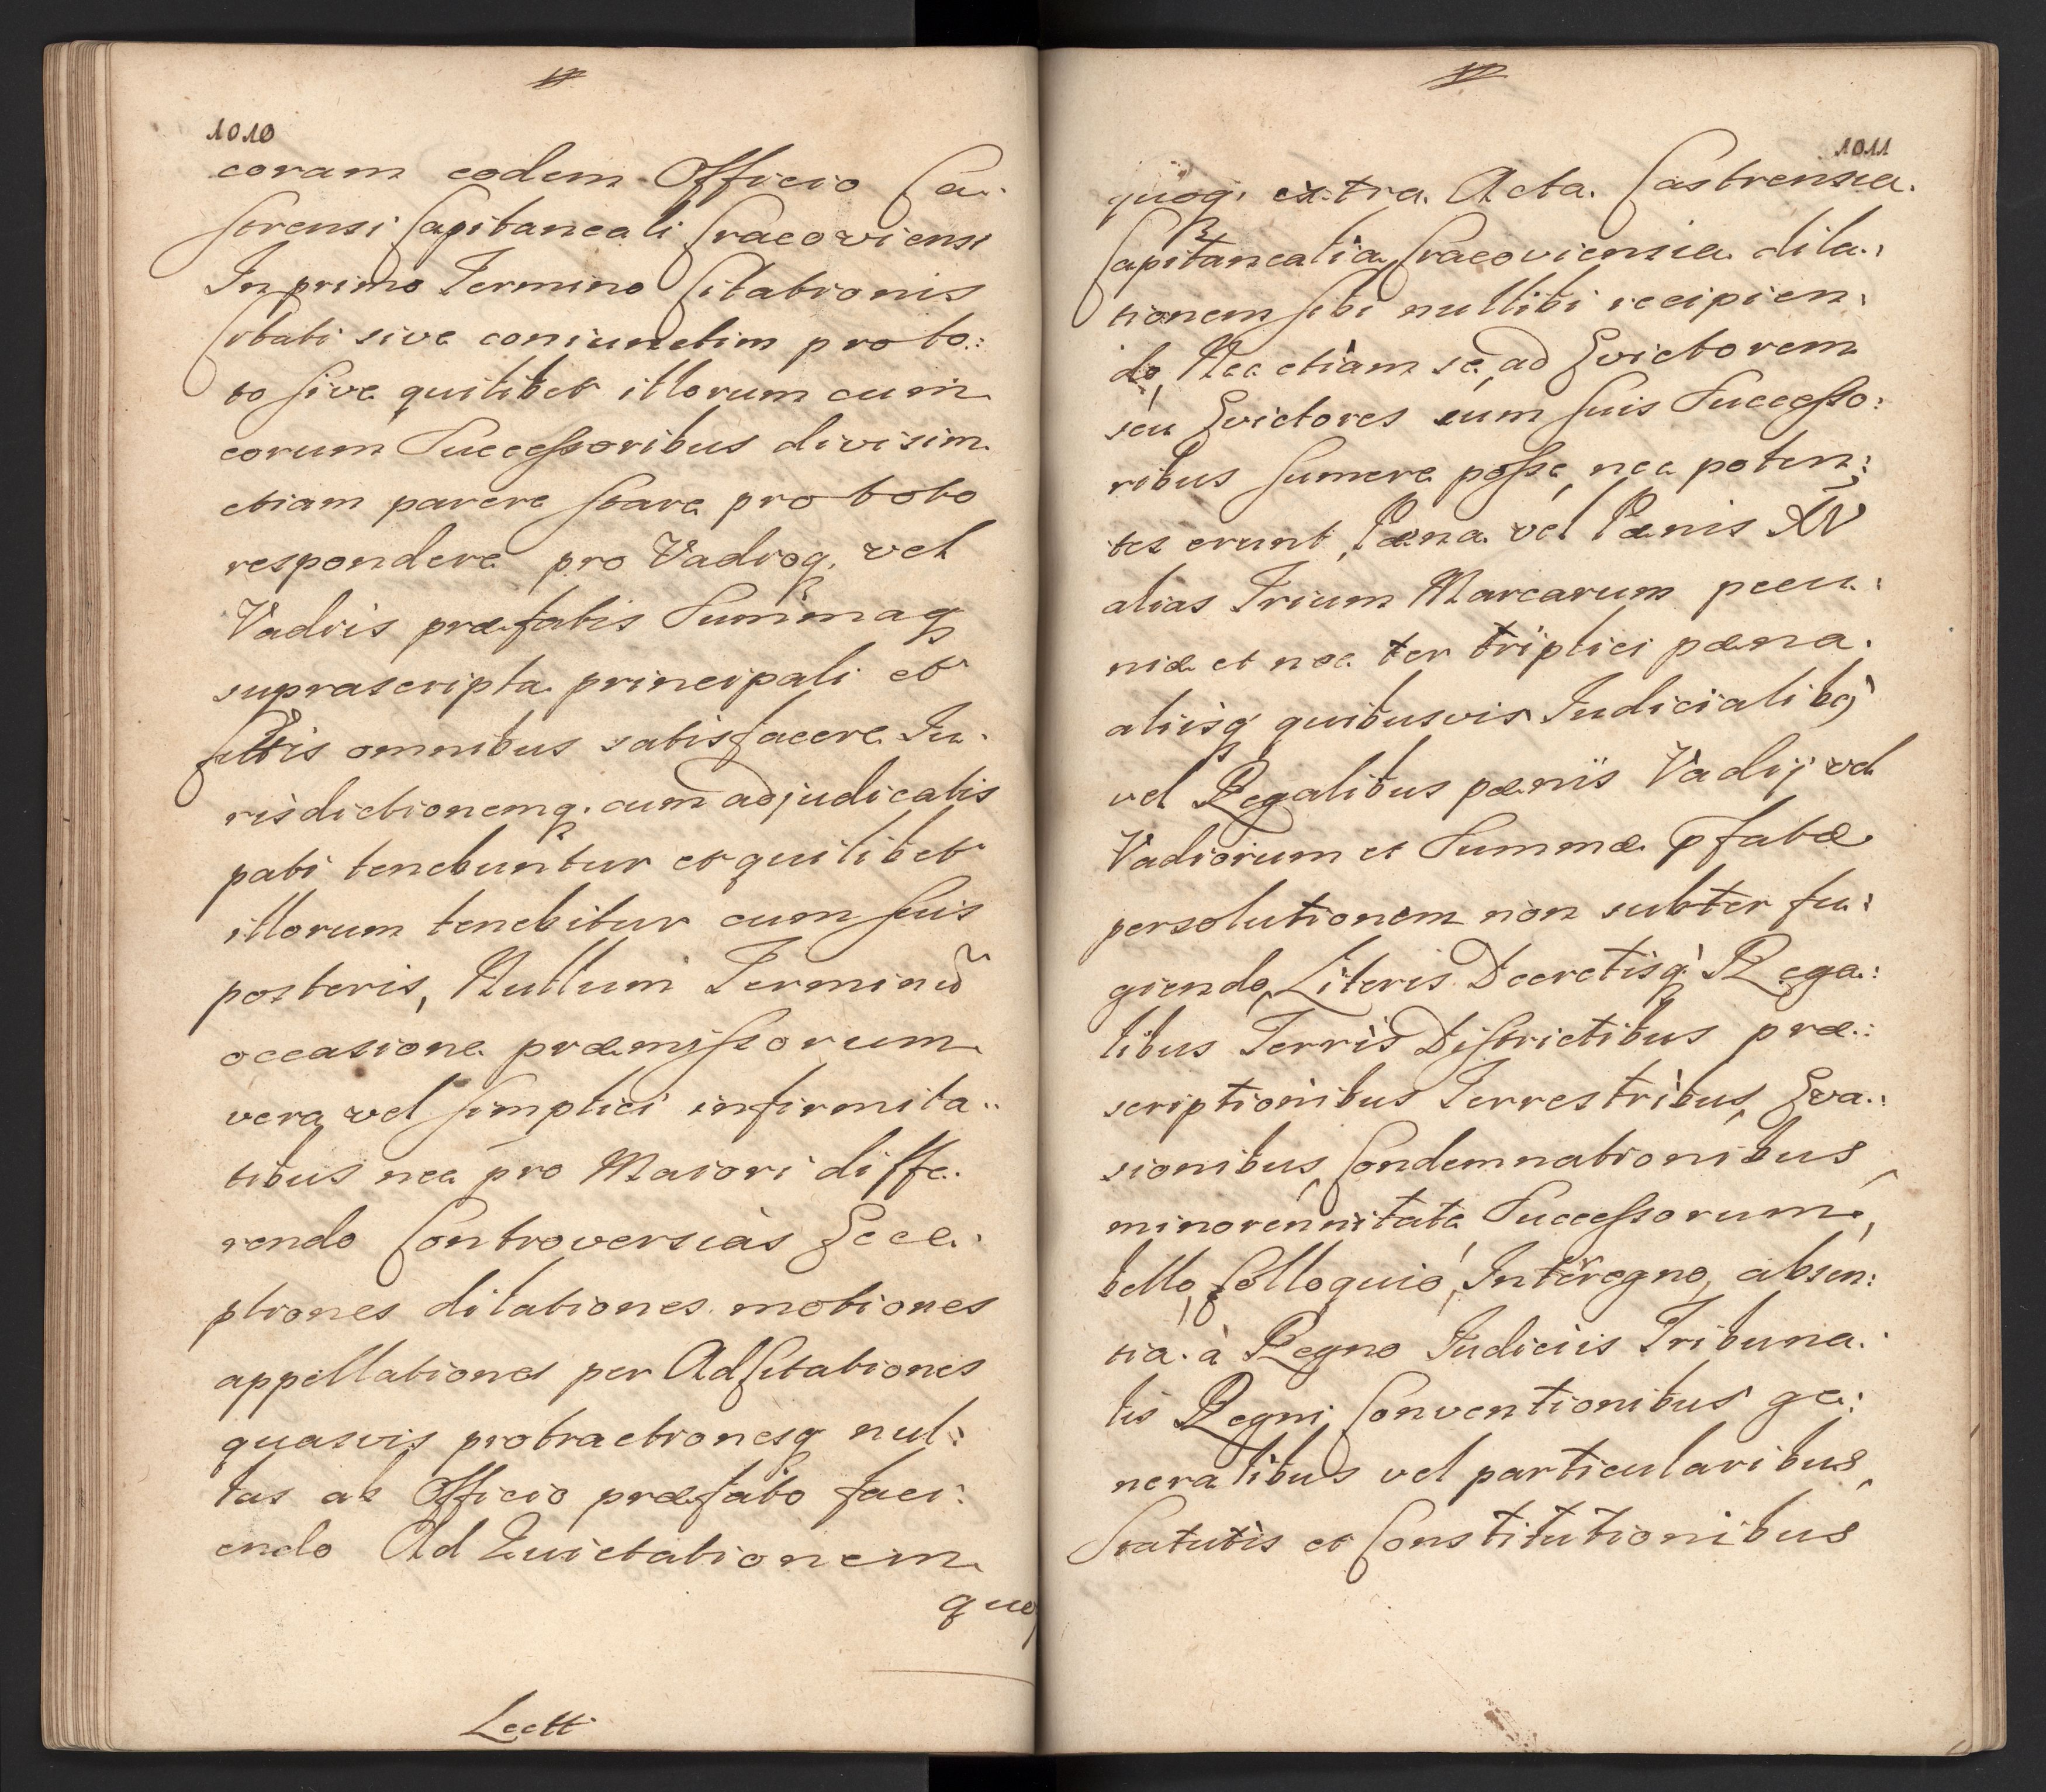 1010
coram eodem Officio Ca:
strensi Capitaneali Cracoviensi
In primo Termino Citationis
Citati sive coniunctim pro to:
to sive quilibet illorum cum
eorum Successoribus divisim
etiam parere stare pro toto
respondere pro Vadioq. vel
Vadiis præfatis Summaq
suprascripta principali et
omnibus satisfacere Ju:
risdictionemq. cum adjudicatis
pati tenebuntur et quilibet
illorum tenebitur cum suis
posteris, Nullum Terminū
occasione præmissorum
vera vel simplici infirmita:
tibus nec pro Maiori diffe:
rendo Controversias Exce:
ptiones dilationes motiones
appellationes per Adcitationes
quasvis protractionesq nul:
las ab Officio præfato faci:
endo Ad Quietationem
quoq
Lectt
1011
quoq. extra Acta Castrensia
Capitanealia Cracoviensia dila:
tionem sibi nullibi recipien:
do, Nec etiam se, ad Evictorem
seu Evictores cum suis Successo:
ribus sumere posse, nec poten:
tes erunt, Pæna vel Pænis XV
alias Trium Marcarum pecu:
niæ et nec ter triplici pæna
aliisq quibusvis Judicialibq
vel Regalibus pænis Vadij vel
Vadiorum et Summæ pfatæ
persolutionem non subter fu:
giendo, Literis Decretisq Rega:
libus Terris Districtibus præ:
scriptionibus Terrestribus, Eva:
sionibus, Condemnationibus,
minorennitate Successorum,
bello, Colloquio, Interegno, absen:
tia à Regno Judiciis Tribuna:
lis Regni, Conventionibus ge:
neralibus vel particularibus,
Statutis et Constitutionibus